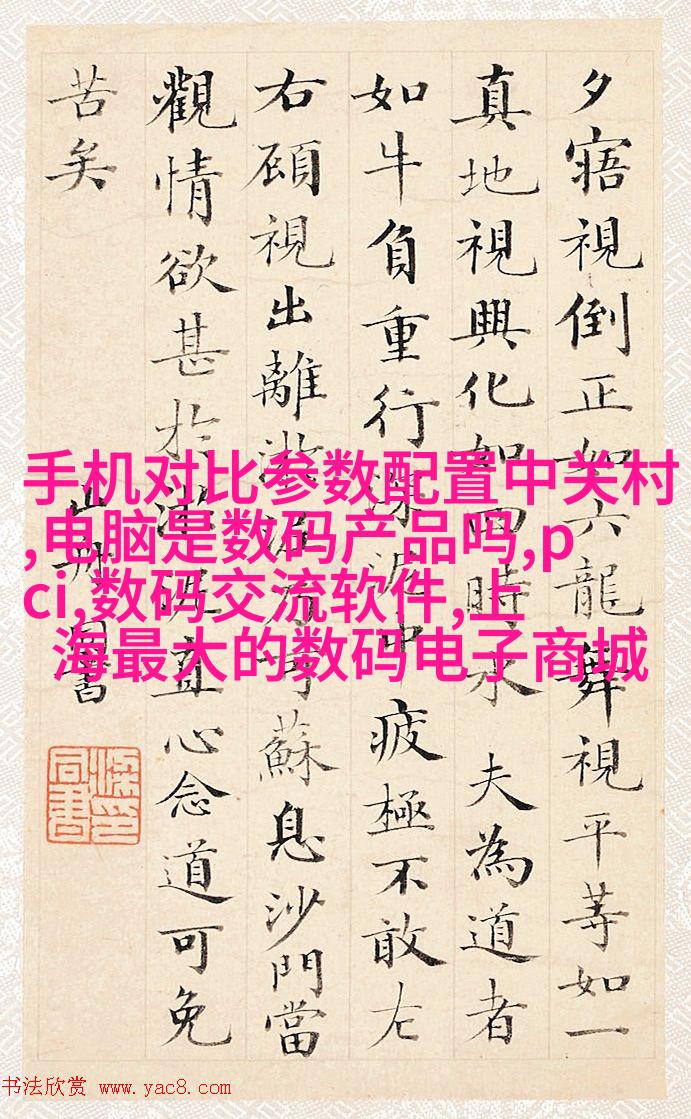 夕寤視倒正如六龍舞視平等如一
真地視興化如四時木夫為道者
如牛負重行深泥中疲極不敢左
右顧視出離淤泥乃可蘇息沙門當
觀情欲甚於淤泥直心念道可免
苦矣
山舟同書
手机对比参数配置中关村
,电脑是数码产品吗,p
ci,数码交流软件,上
海最大的数码电子商城
书法欣赏 www.yac8.com